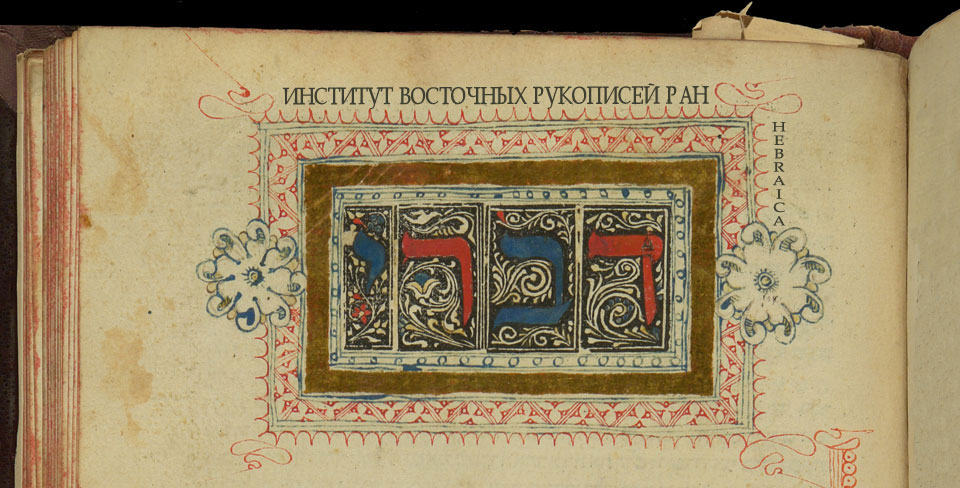 ИНСТИТУТ ВОСТОЧНЫХ РУКОПИСЕЙ РАН
HEBRAICA
דברי